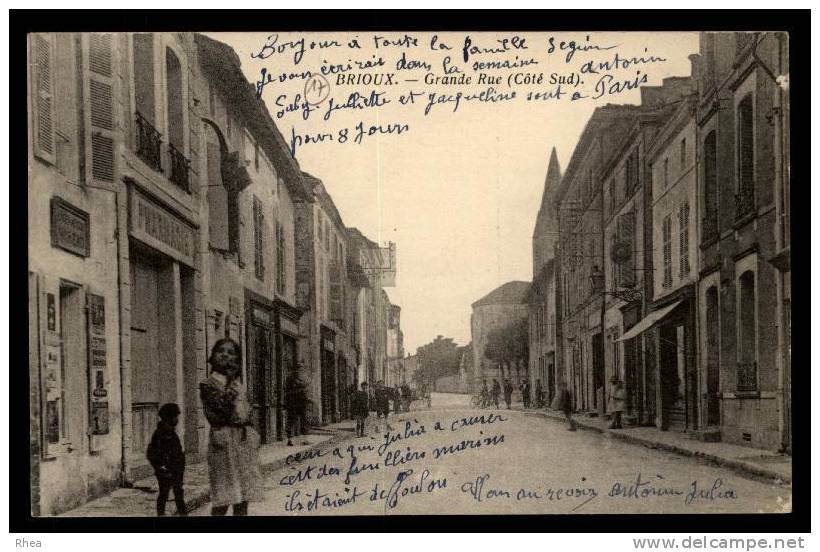 Bonjour à toute la famille Segion
je vous écrirais dans la semaine antonin
BRIOUX. - Grande Rue (Côté Sud).
17
Gaby Julliette et Jacqueline sont a Paris
pour 8 jours
PHARMACIE
ceux a qui Julia a causer
cest des fusilliers marins
ils étaient de Toulon
Allons au revoir antonin Julia
Rhea
http://www.delcampe.net